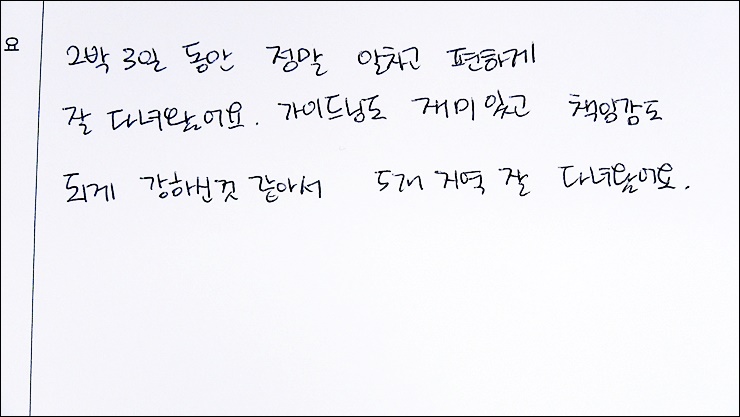 요
2박 3일 동안 정말 알차고 편하게
잘 다녀왔어요. 가이드님도 재미있고 책임감도
되게 강하신것 같아서 5개 지역 잘 다녀왔어요.